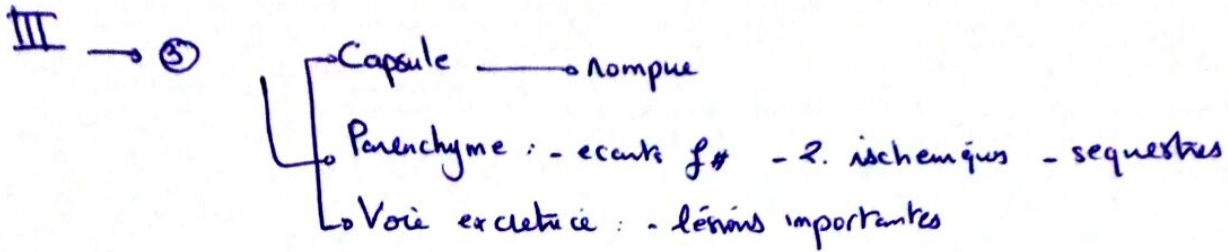 III → ③
Capsule → rompue
Parenchyme : - ecarts f# - 2. ischemiques - sequestres
Voie excretrice : - lésions importantes